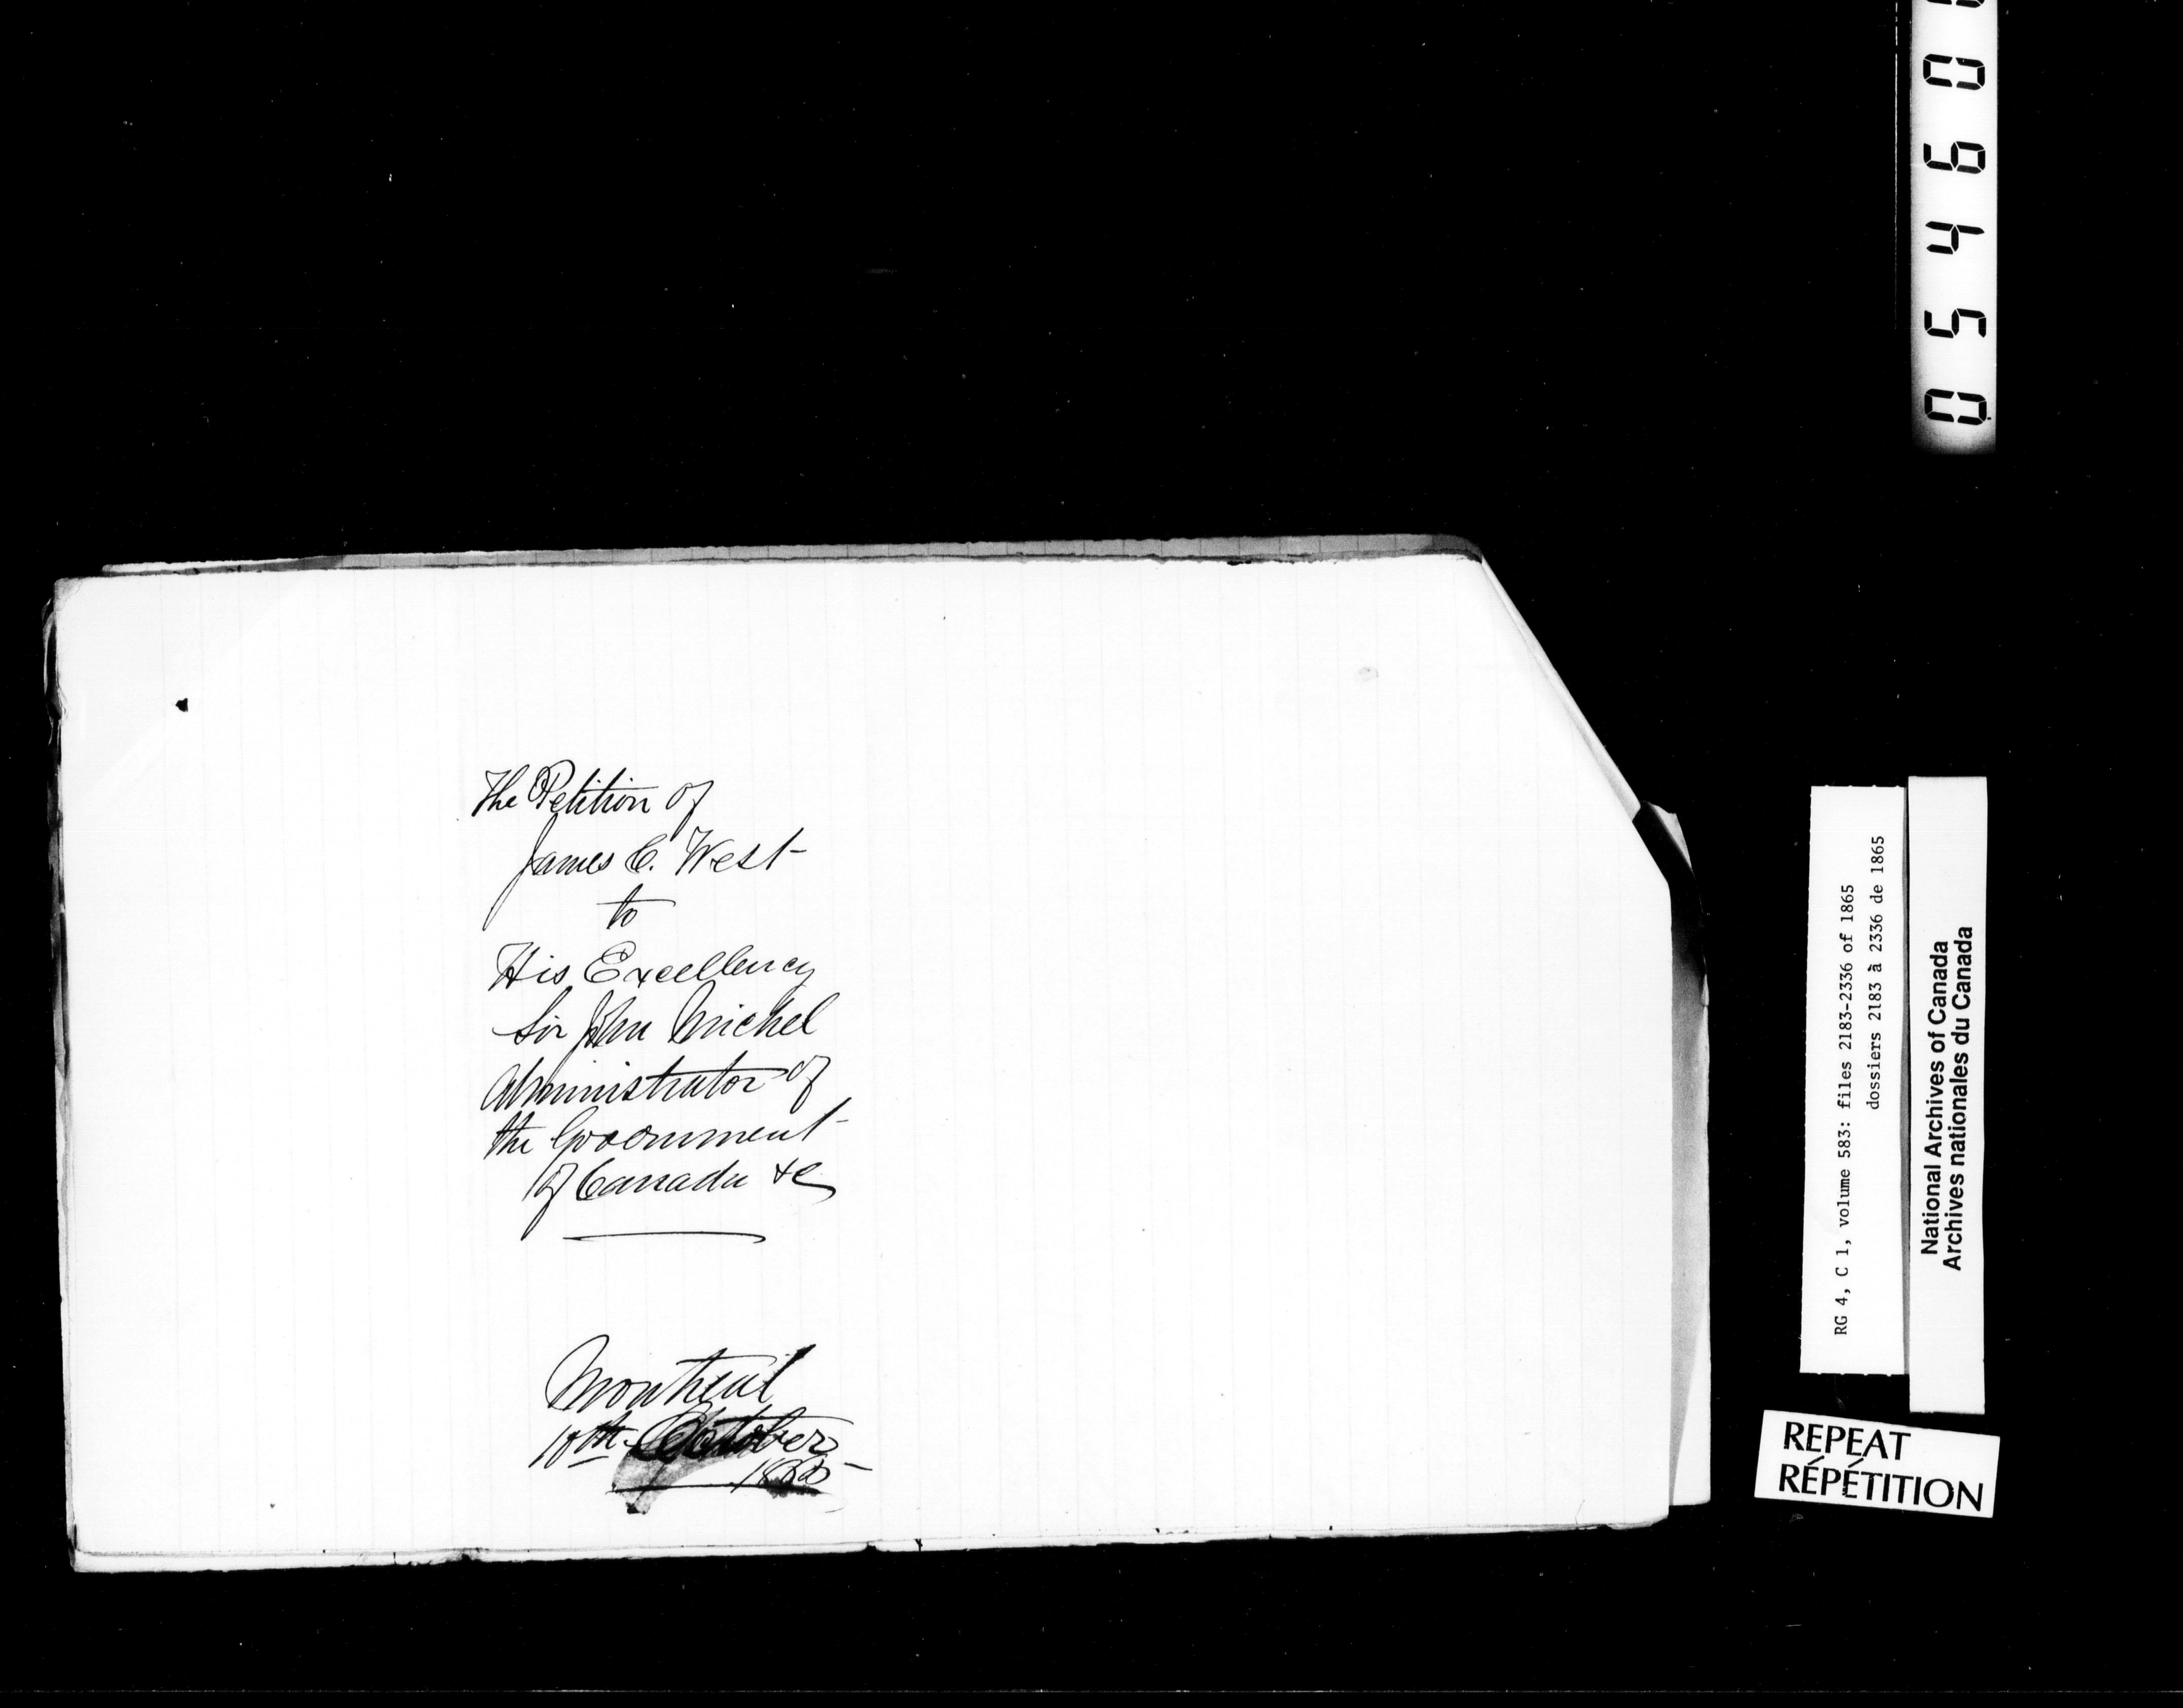 The Petition of
James C. West
to
His Excellency
Sir John Michel
Administrator of
the Government
of Canada &c
Montreal
10th October
1865
RG 4, C 1, volume 583: files 2183-2336 of 1865
dossiers 2183 à 2336 de 1865
National Archives of Canada
Archives nationales du Canada
REPEAT
RÉPÉTITION
0 5 4 6 0